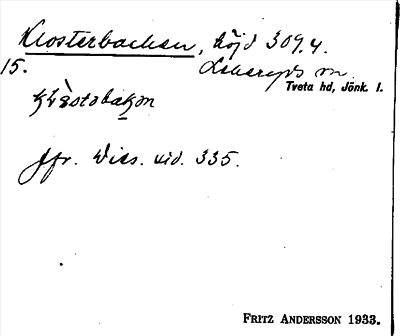 Klosterbacken, höjd 309.4.
15. Lekeryds sn.
Tveta hd, Jönk. l.
Jfr. Wies. sid. 335.
FRITZ ANDERSSON 1933.